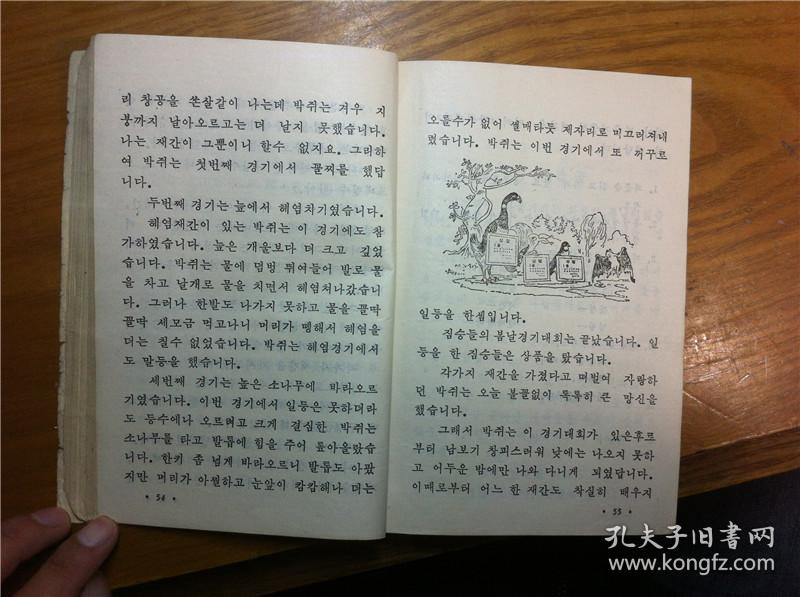 리 창공을 쏜살같이 나는데 박쥐는 겨우 지
붕까지 날아오르고는 더 날지 못했습니다.
나는 재간이 그뿐이니 할수 없지요. 그리하
여 박쥐는 첫번째 경기에서 꼴찌를 했답
니다.
두번째 경기는 늪에서 헤엄치기였습니다.
헤엄재간이 있는 박쥐는 이 경기에도 참
가하였습니다. 늪은 개울보다 더 크고 깊었
습니다. 박쥐는 물에 덤벙 뛰여들어 발로 물
을 차고 날개로 물을 치면서 헤염쳐나갔습니
다. 그러나 한발도 나가지 못하고 물을 꿀딱
꿀딱 세모금 먹고나니 머리가 뗑해서 헤염을
더는 칠수 없었습니다. 박쥐는 헤염경기에서
도 말등을 했습니다.
세번째 경기는 높은 소나무에 바라오르
기였습니다. 이번 경기에서 일등은 못하더라
도 등수에나 오르려고 크게 결심한 박쥐는
소나무를 타고 발톱에 힘을 주어 톺아올랐습
니다. 한키 좀 넘게 바라오르니 발톱도 아팠
지만 머리가 아찔하고 눈앞이 캄캄해나 더는
• 54 •
오를수가 없어 썰매타듯 제자리로 미끄러져내
렸습니다. 박쥐는 이번 경기에서 또 꺼꾸로
일등을 한셈입니다.
짐승들의 봄날경기대회는 끝났습니다. 일
등을 한 짐승들은 상품을 탔습니다.
각가지 재간을 가졌다고 떠벌여 자랑하
던 박쥐는 오늘 볼꼴없이 톡톡히 큰 망신을
했습니다.
그래서 박쥐는 이 경기대회가 있은후르
부터 남보기 창피스러워 낮에는 나오지 못하
고 어두운 밤에만 나와 다니게 되였답니다.
이때로부터 어느 한 재간도 착실히 배우지
• 55 •
孔夫子旧书网
www.kongfz.com